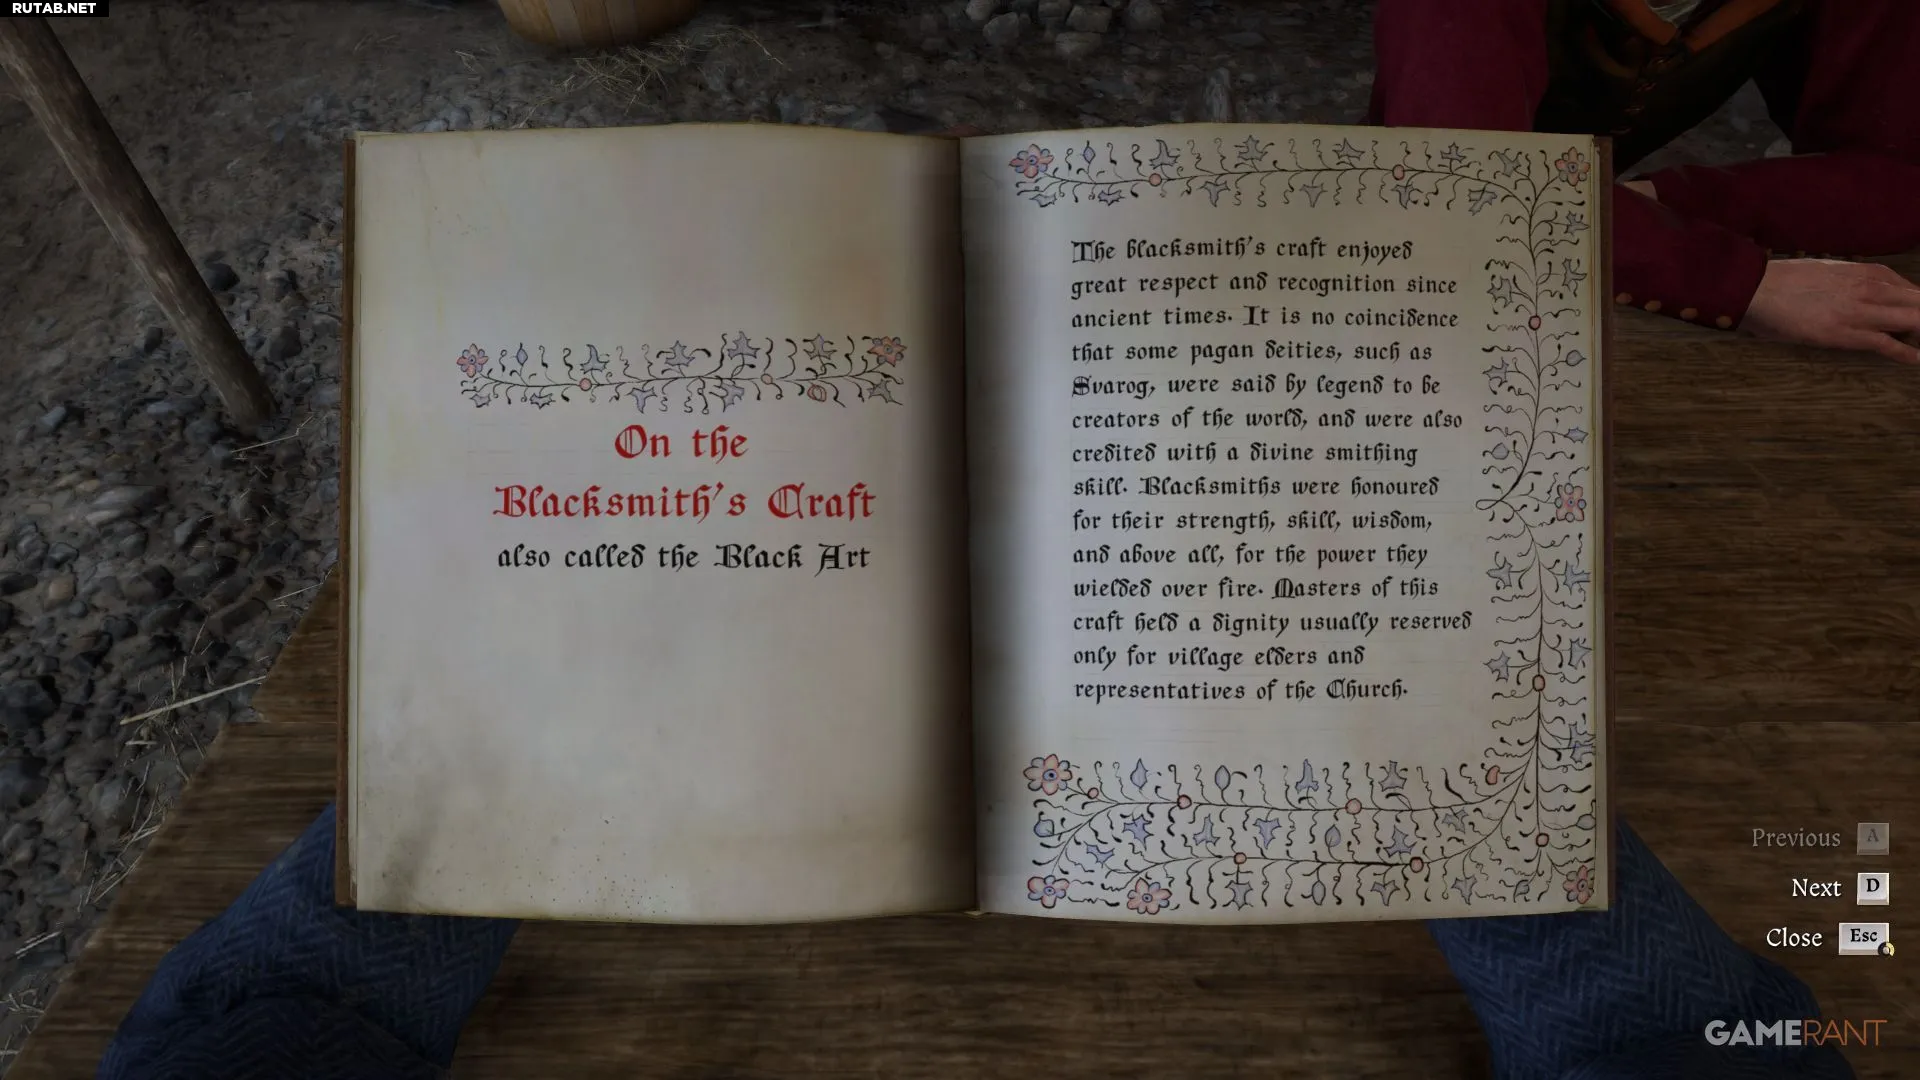 RUTAB.NET
On the
Blacksmith's Craft
also called the Black Art
The blacksmith's craft enjoyed
great respect and recognition since
ancient times. It is no coincidence
that some pagan deities, such as
Svarog, were said by legend to be
creators of the world, and were also
credited with a divine smithing
skill. Blacksmiths were honoured
for their strength, skill, wisdom,
and above all, for the power they
wielded over fire. Masters of this
craft held a dignity usually reserved
only for village elders and
representatives of the Church.
Previous A
Next D
Close Esc
GAMERANT